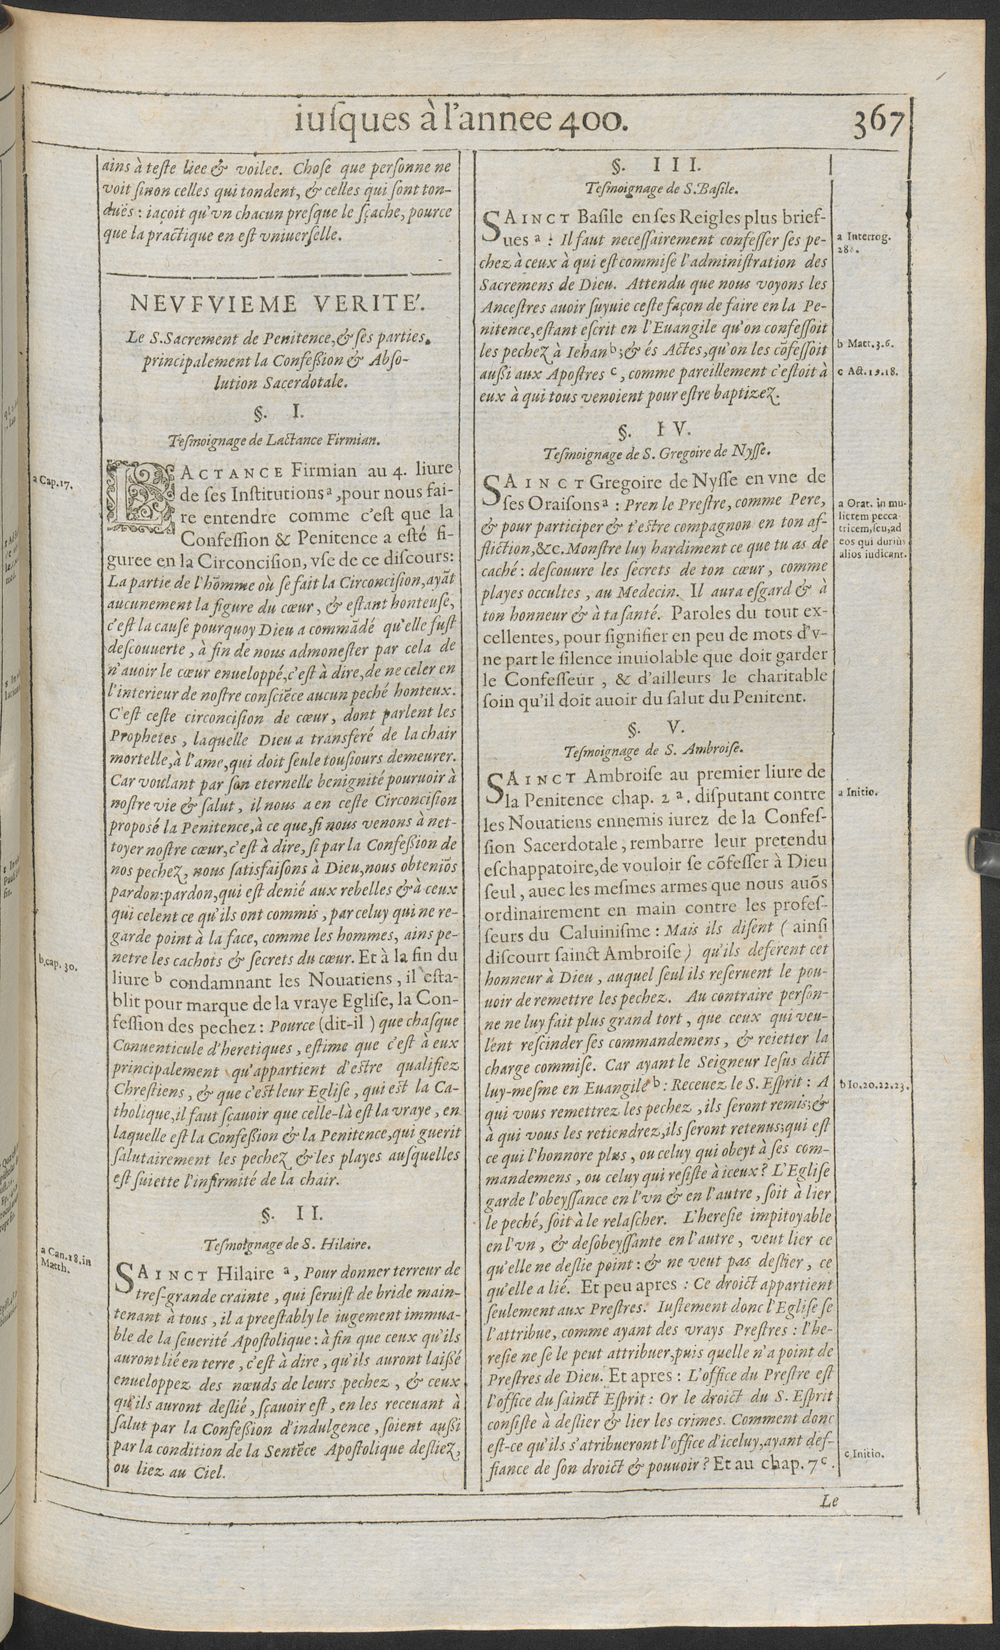 iuſques à l'annee 400.
367
ains à teſte liee & voilee. Choſe que perſonne ne
voit ſinon celles qui tondent, & celles qui ſont ton-
duës : iaçoit qu'vn chacun preſque le ſçache, pource
que la practique en eſt vniuerſelle.
NEVFVIEME VERITE'.
Le S. Sacrement de Penitence, & ſes parties,
principalement la Confeßion & Abſo-
lution Sacerdotale.
§. I.
Teſmoignage de Lactance Firmian.
a Cap. 17.
LACTANCE Firmian au 4. liure
de ſes Inſtitutions a, pour nous fai-
re entendre comme c'eſt que la
Confeſſion & Penitence a eſté fi-
guree en la Circonciſion, vſe de ce diſcours:
La partie de l'hōme où ſe fait la Circonciſion, ayāt
aucunement la figure du cœur, & eſtant honteuſe,
c'eſt la cauſe pourquoy Dieu a commādé qu'elle fuſt
deſcouuerte, à fin de nous admoneſter par cela de
n'auoir le cœur enueloppé, c'eſt à dire, de ne celer en
l'interieur de noſtre conſciēce aucun peché honteux.
C'eſt ceſte circonciſion de cœur, dont parlent les
Prophetes, laquelle Dieu a transferé de la chair
mortelle, à l'ame, qui doit ſeule touſiours demeurer.
Car voulant par ſon eternelle benignité pouruoir à
noſtre vie & ſalut, il nous a en ceſte Circonciſion
propoſé la Penitence, à ce que, ſi nous venons à net-
toyer noſtre cœur, c'eſt à dire, ſi par la Confeßion de
nos pechez, nous ſatisfaiſons à Dieu, nous obteniōs
pardon: pardon, qui eſt denié aux rebelles & à ceux
qui celent ce qu'ils ont commis, par celuy qui ne re-
garde point à la face, comme les hommes, ains pe-
netre les cachots & ſecrets du cœur. Et à la fin du
b. cap. 30.
liure b condamnant les Nouatiens, il eſta-
blit pour marque de la vraye Egliſe, la Con-
feſſion des pechez : Pource (dit-il) que chaſque
Conuenticule d'heretiques, eſtime que c'eſt à eux
principalement qu'appartient d'eſtre qualifiez
Chreſtiens, & que c'eſt leur Egliſe, qui eſt la Ca-
tholique, il faut ſçauoir que celle-là eſt la vraye, en
laquelle eſt la Confeßion & la Penitence, qui guerit
ſalutairement les pechez & les playes auſquelles
eſt ſuiette l'infirmité de la chair.
§. II.
Teſmoignage de S. Hilaire.
a Can. 18. in
Matth.
SAINCT Hilaire a, Pour donner terreur de
treſ-grande crainte, qui ſeruiſt de bride main-
tenant à tous, il a preeſtably le iugement immua-
ble de la ſeuerité Apoſtolique : à fin que ceux qu'ils
auront lié en terre, c'eſt à dire, qu'ils auront laißé
enueloppez des nœuds de leurs pechez, & ceux
qu'ils auront deſlié, ſçauoir eſt, en les receuant à
ſalut par la Confeßion d'indulgence, ſoient außi
par la condition de la Sentēce Apoſtolique deſliez,
ou liez au Ciel.
§. III.
Teſmoignage de S. Baſile.
SAINCT Baſile en ſes Reigles plus brief-
ues a : Il faut neceſſairement confeſſer ſes pe-
a Interrog.
chez à ceux à qui eſt commiſe l'adminiſtration des
Sacremens de Dieu. Attendu que nous voyons les
Anceſtres auoir ſuyuie ceſte façon de faire en la Pe-
nitence, eſtant eſcrit en l'Euangile qu'on confeſſoit
les pechez à Iehan b; & és Actes, qu'on les cōfeſſoit
b Matt. 3. 6.
außi aux Apoſtres c, comme pareillement c'eſtoit à
c Act. 19. 18.
eux à qui tous venoient pour eſtre baptizez.
§. IV.
Teſmoignage de S. Gregoire de Nyſſe.
SAINCT Gregoire de Nyſſe en vne de
ſes Oraiſons a : Pren le Preſtre, comme Pere,
& pour participer & t'eſtre compagnon en ton af-
fliction, &c. Monſtre luy hardiment ce que tu as de
caché : deſcouure les ſecrets de ton cœur, comme
playes occultes, au Medecin. Il aura eſgard & à
ton honneur & à ta ſanté. Paroles du tout ex-
cellentes, pour ſignifier en peu de mots d'v-
ne part le ſilence inuiolable que doit garder
le Confeſſeur, & d'ailleurs le charitable
ſoin qu'il doit auoir du ſalut du Penitent.
a Orat. in mu-
lierem pecca
tricem, ſeu, ad
eos qui duriùs
alios iudicant.
§. V.
Teſmoignage de S. Ambroiſe.
SAINCT Ambroiſe au premier liure de
la Penitence chap. 2 a. diſputant contre
a Initio.
les Nouatiens ennemis iurez de la Confeſ-
ſion Sacerdotale, rembarre leur pretendu
eſchappatoire, de vouloir ſe cōfeſſer à Dieu
ſeul, auec les meſmes armes que nous auōs
ordinairement en main contre les profeſ-
ſeurs du Caluiniſme : Mais ils diſent (ainſi
diſcourt ſainct Ambroiſe) qu'ils deferent cet
honneur à Dieu, auquel ſeul ils reſeruent le pou-
uoir de remettre les pechez. Au contraire perſon-
ne ne luy fait plus grand tort, que ceux qui veu-
lent reſcinder ſes commandemens, & reietter la
charge commiſe. Car ayant le Seigneur Ieſus dict
luy-meſme en Euangile b : Receuez le S. Eſprit : A
b Io. 20. 22. 23.
qui vous remettrez les pechez, ils ſeront remis; &
à qui vous les retiendrez, ils ſeront retenus; qui eſt
ce qui l'honnore plus, ou celuy qui obeyt à ſes com-
mandemens, ou celuy qui reſiſte à iceux? L'Egliſe
garde l'obeyſſance en l'vn & en l'autre, ſoit à lier
le peché, ſoit à le relaſcher. L'hereſie impitoyable
en l'vn, & deſobeyſſante en l'autre, veut lier ce
qu'elle ne deſlie point : & ne veut pas deſlier, ce
qu'elle a lié. Et peu apres : Ce droict appartient
ſeulement aux Preſtres. Iuſtement donc l'Egliſe ſe
l'attribue, comme ayant des vrays Preſtres : l'he-
reſie ne ſe le peut attribuer, puis quelle n'a point de
Preſtres de Dieu. Et apres : L'office du Preſtre eſt
l'office du ſainct Eſprit : Or le droict du S. Eſprit
conſiſte à deſlier & lier les crimes. Comment donc
eſt-ce qu'ils s'atribueront l'office d'iceluy, ayant deſ-
fiance de ſon droict & pouuoir? Et au chap. 7 c.
c. Initio.
Le